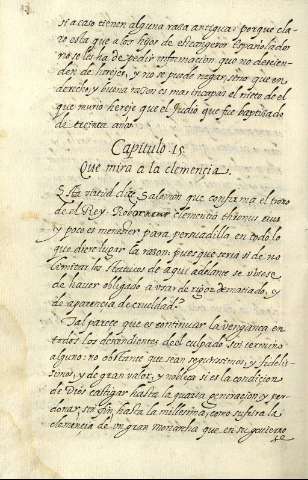 si acaso tienen alguna raza antigua: porque cla-
ro esta que a los hijos de estrangero Españolados
no se les ha de pedir informacion que no descien-
den de herejes, y no se puede negar, sino que en
derecho, y buena razon es mas incapaz el nieto de el
que murio hereje que el Judio que fue baptizado
de treinta años.
Capitulo 15.
Que mira a la clemencia.
Esta virtud dize Salomon que confirma el trono
de el Rey. Roboratur clementia thronus eius
y poco es menester para persuadilla, en todo lo
que diere lugar la razon: pues que seria si de no
limitar los statutos de aqui adelante se viniese
de haver obligado a usar de rigor demasiado, y
de aparencia de crueldad?
Tal parece que es continuar la vengança en
todos los descendientes del culpado sin termino
alguno: no obstante que sean segurissimos, y fidelis-
simos, y de gran valor, y nobleza si es la condicion
de Dios castigar hasta la quarta generacion y per-
donar, sin fin, hasta la millesima, como sufrira la
clemencia de un gran monarcha que en su govierno
se